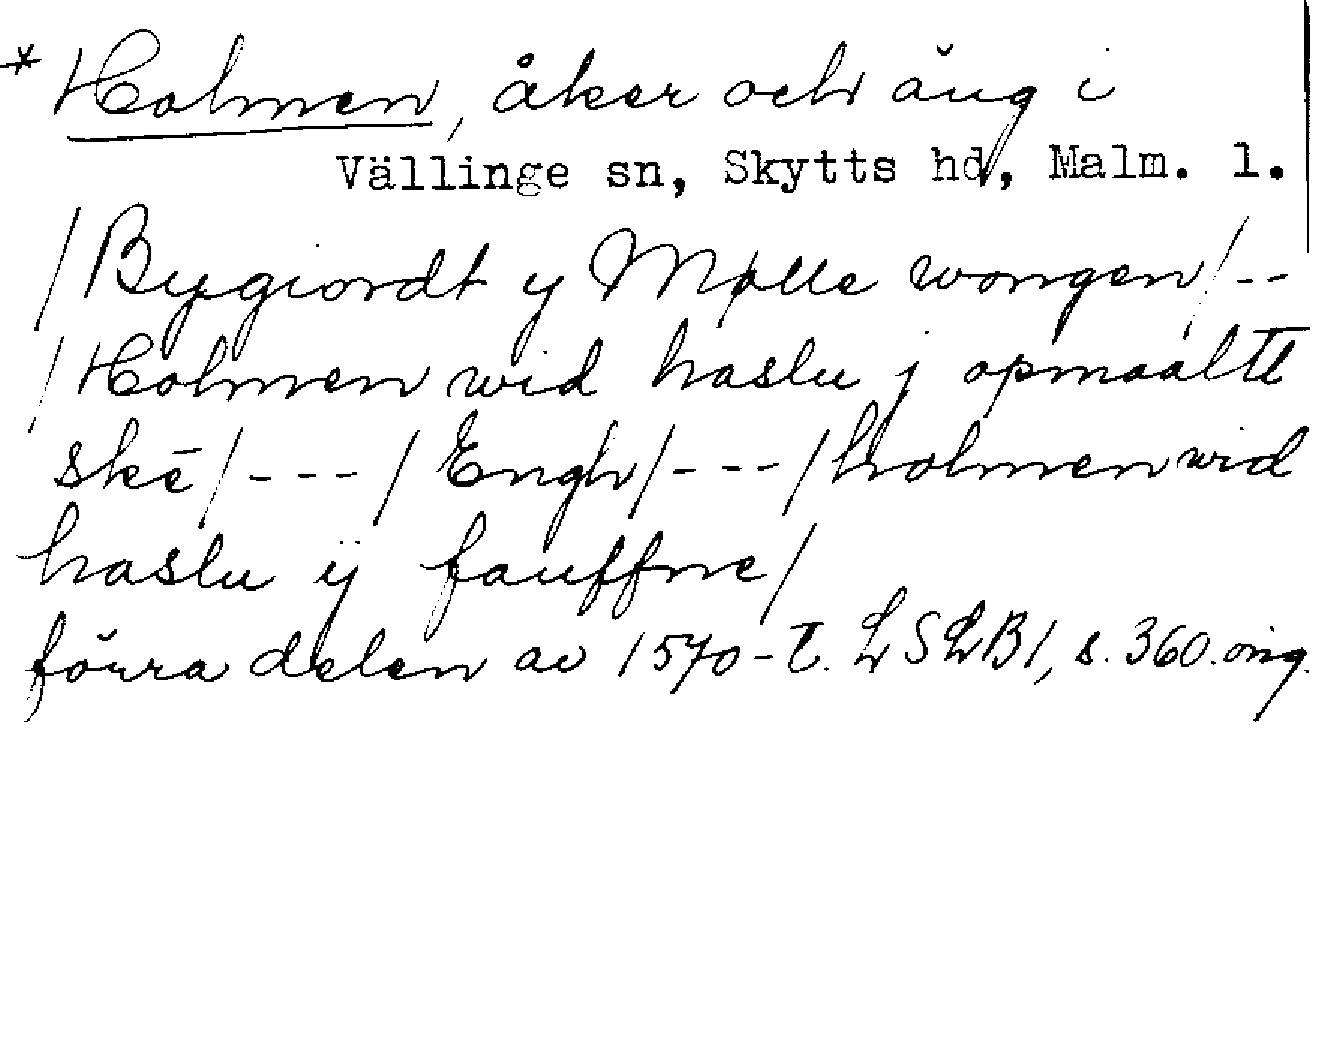 * Holmen, åker och äng i
Vällinge sn, Skytts hd, Malm. l.
/Bygiordt y Mølle wongen/--
/Holmen wid haslu j opmaaltt
skē/---/Engh/---/holmen wid
haslu ÿ fauffne/
förra delen av 1570-t. LSLB1, s. 360. oing.